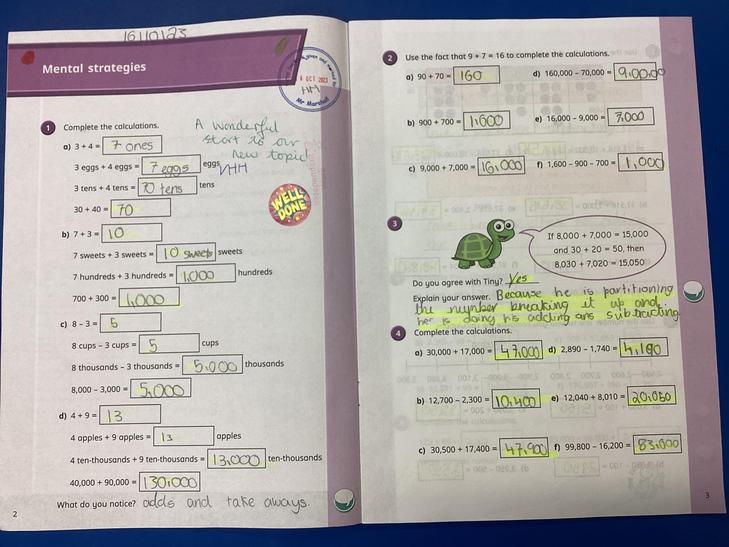 16/10/23
Mental strategies
6 OCT 2023
HH
Mr Marshall
A wonderful
start to our
new topic
HH
WELL DONE
1 Complete the calculations.
a) 3 + 4 = 7 ones
3 eggs + 4 eggs = 7 eggs eggs
3 tens + 4 tens = 70 tens tens
30 + 40 = 70
b) 7 + 3 = 10
7 sweets + 3 sweets = 10 sweets sweets
7 hundreds + 3 hundreds = 1,000 hundreds
700 + 300 = 1,000
c) 8 – 3 = 5
8 cups – 3 cups = 5 cups
8 thousands – 3 thousands = 5,000 thousands
8,000 – 3,000 = 5,000
d) 4 + 9 = 13
4 apples + 9 apples = 13 apples
4 ten-thousands + 9 ten-thousands = 13,000 ten-thousands
40,000 + 90,000 = 130,000
What do you notice? adds and take aways.
2
2 Use the fact that 9 + 7 = 16 to complete the calculations.
a) 90 + 70 = 160 d) 160,000 – 70,000 = 90,000
b) 900 + 700 = 1,600 e) 16,000 – 9,000 = 7,000
c) 9,000 + 7,000 = 16,000 f) 1,600 – 900 – 700 = 1,000
3
If 8,000 + 7,000 = 15,000
and 30 + 20 = 50, then
8,030 + 7,020 = 15,050
Do you agree with Tiny? Yes
Explain your answer. Because he is partitioning
the number breaking it up and
her is doing his adding ans subtracting
4 Complete the calculations.
a) 30,000 + 17,000 = 47,000 d) 2,890 – 1,740 =
b) 12,700 – 2,300 = 10,400 e) 12,040 + 8,010 = 20,050
c) 30,500 + 17,400 = 47,900 f) 99,800 – 16,200 = 83,600
3